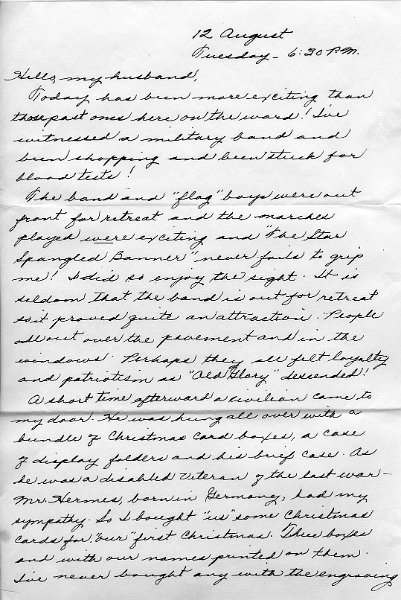 12 August
Tuesday - 6:30 P.M.
Hello, my husband,
Today has been more exciting than
those past ones here on the ward! I've
witnessed a military band and
been shopping and been stuck for
blood tests!
The band and "flag" boys were out
front for retreat and the marches
played were exciting and "The Star
Spangled Banner" never fails to grip
me! I did so enjoy the sight. It is
seldom that the band is out for retreat
so it proved quite an attraction. People
all out over the pavement and in the
windows. Perhaps they all felt loyalty
and patriotism as "Old Glory" descended!
A short time afterward a civilian came to
my door. He was hung all over with a
bundle of Christmas Card boxes, a case
of display folders and his brief case. As
he was a disabled Veteran of the last war -
Mr. Hermes, born in Germany, had my
sympathy. So I bought "us" some Christmas
cards for "our" first Christmas. Three boxes
and with our names printed on them.
I've never bought any with the engraving